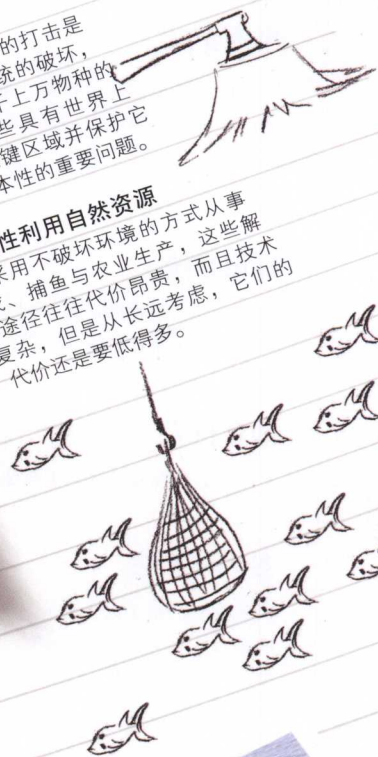 的打击是
统的破坏，
千上万物种的
些具有世界上
键区域并保护它
本性的重要问题。
性利用自然资源
采用不破坏环境的方式从事
、捕鱼与农业生产，这些解
途径往往代价昂贵，而且技术
复杂，但是从长远考虑，它们的
代价还是要低得多。